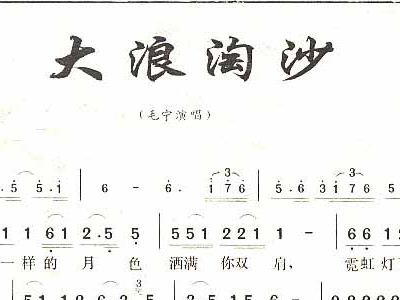 大浪淘沙
（毛宁演唱）
.5 5.1 | 6 - 6. 1 7 6 | 5.6 3 1 7 6 5 5
1 6 1 2.5 5 | 5 5 1 2 2 1 1 - | 6 6 1
一样的 月 色 洒满 你双 肩， 霓虹灯
5 1 1 2 1 2 2